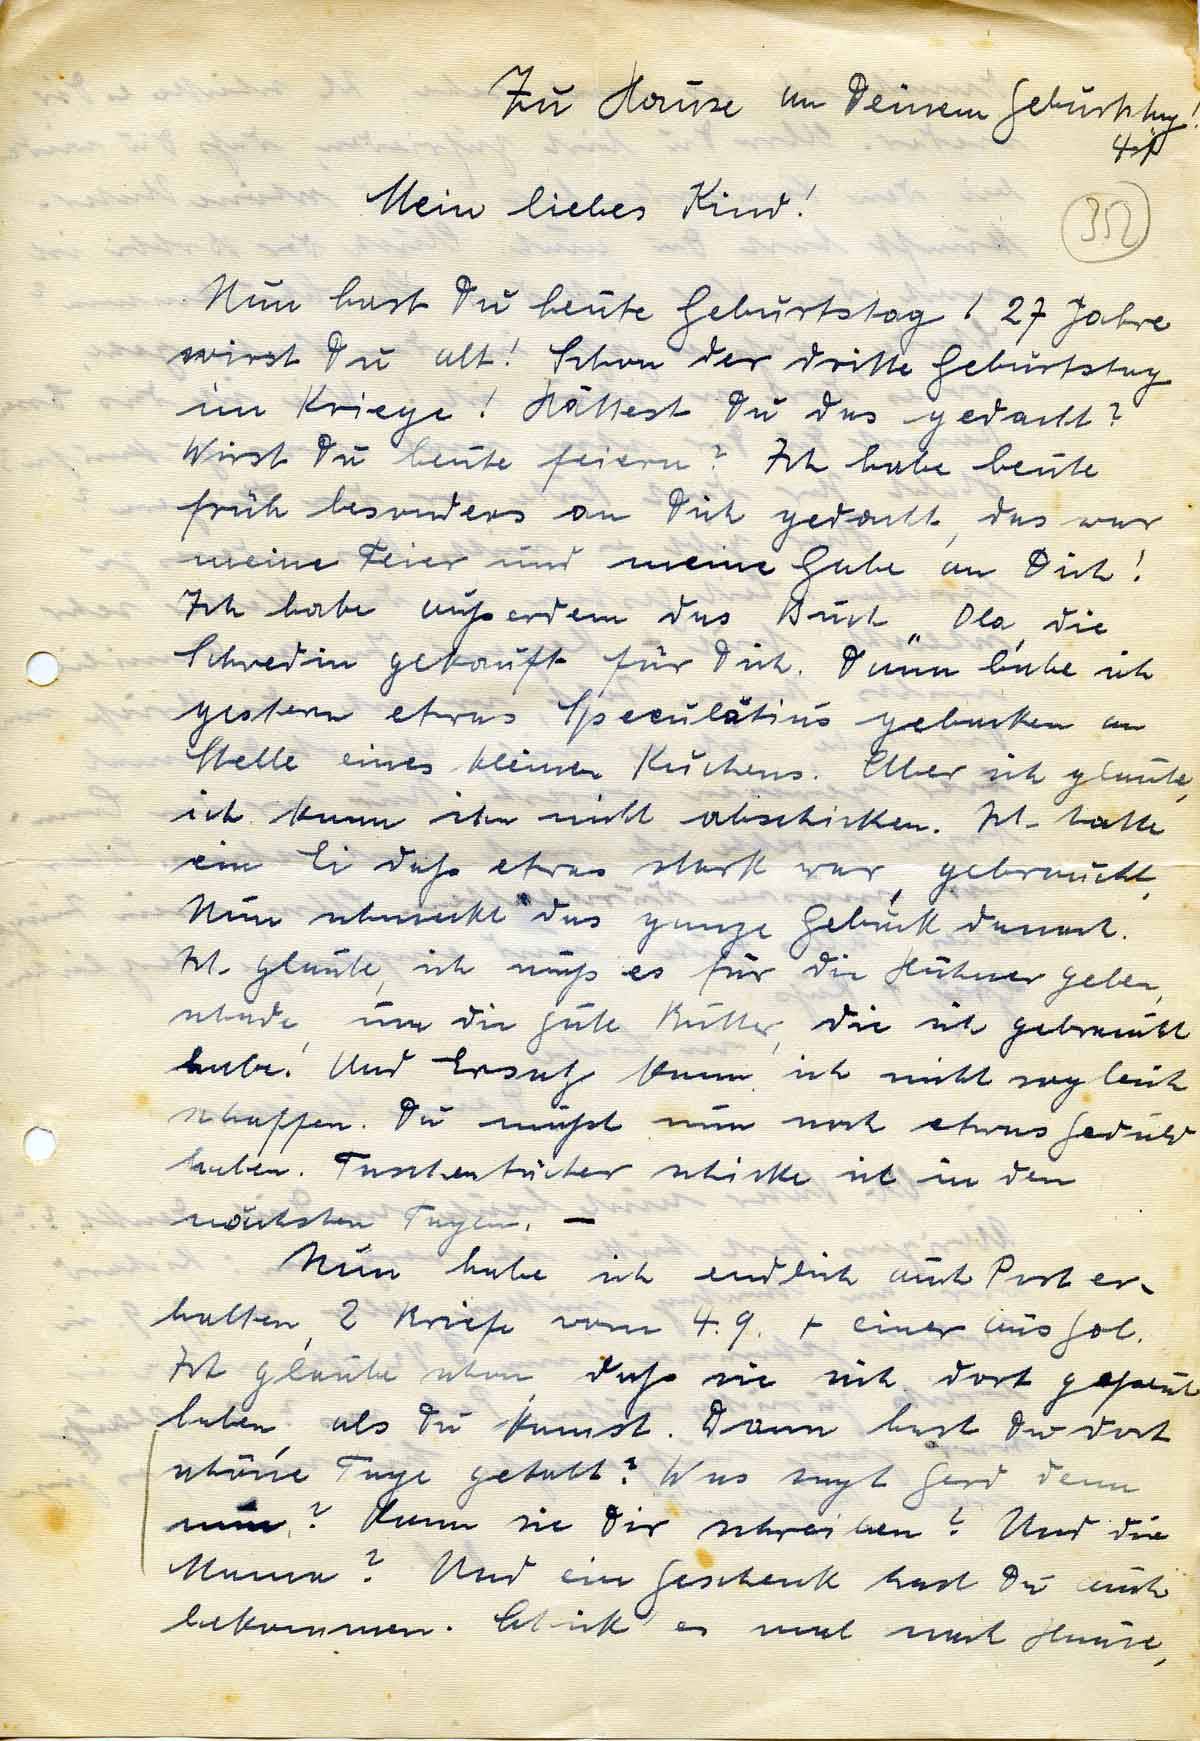 Zu Hause an Deinem Geburtstag!
41
352
Mein liebes Kind!
Nun hast Du heute Geburtstag! 27 Jahre
wirst Du alt! Schon der dritte Geburtstag
im Kriege! Hättest Du das gedacht?
Wirst Du heute feiern? Ich habe heute
früh besonders an Dich gedacht, das war
meine Feier und meine Gabe an Dich!
Ich habe außerdem das Buch „Ola, die
Schwedin gekauft für Dich. Dann habe ich
gestern etwas Speculätius gebacken an
Stelle eines kleinen Kuchens. Aber ich glaube,
ich kann ihn nicht abschicken. Ich hatte
ein Ei daß etwas stark war, gebraucht,
Nun schmeckt das ganze Gebäck danach.
Ich glaube, ich muß es für die Hühner geben,
schade, um die gute Butter, die ich gebraucht
habe! Und Ersatz kann ich nicht sogleich
schaffen. Du mußt nun noch etwas Geduld
haben. Taschentücher schicke ich in den
nächsten Tagen. —
Nun habe ich endlich auch Post er-
halten, 2 Briefe vom 4.9. + einer aus Gol.
Ich glaube schon, daß sie sich dort gefreut
haben, als Du kamst. Dann hast Du dort
schöne Tage gehabt? Was sagt Gerd denn
nun? Kann sie Dir schreiben? Und die
Mama? Und ein Geschenk hast Du auch
bekommen. Schick es mal nach Hause,